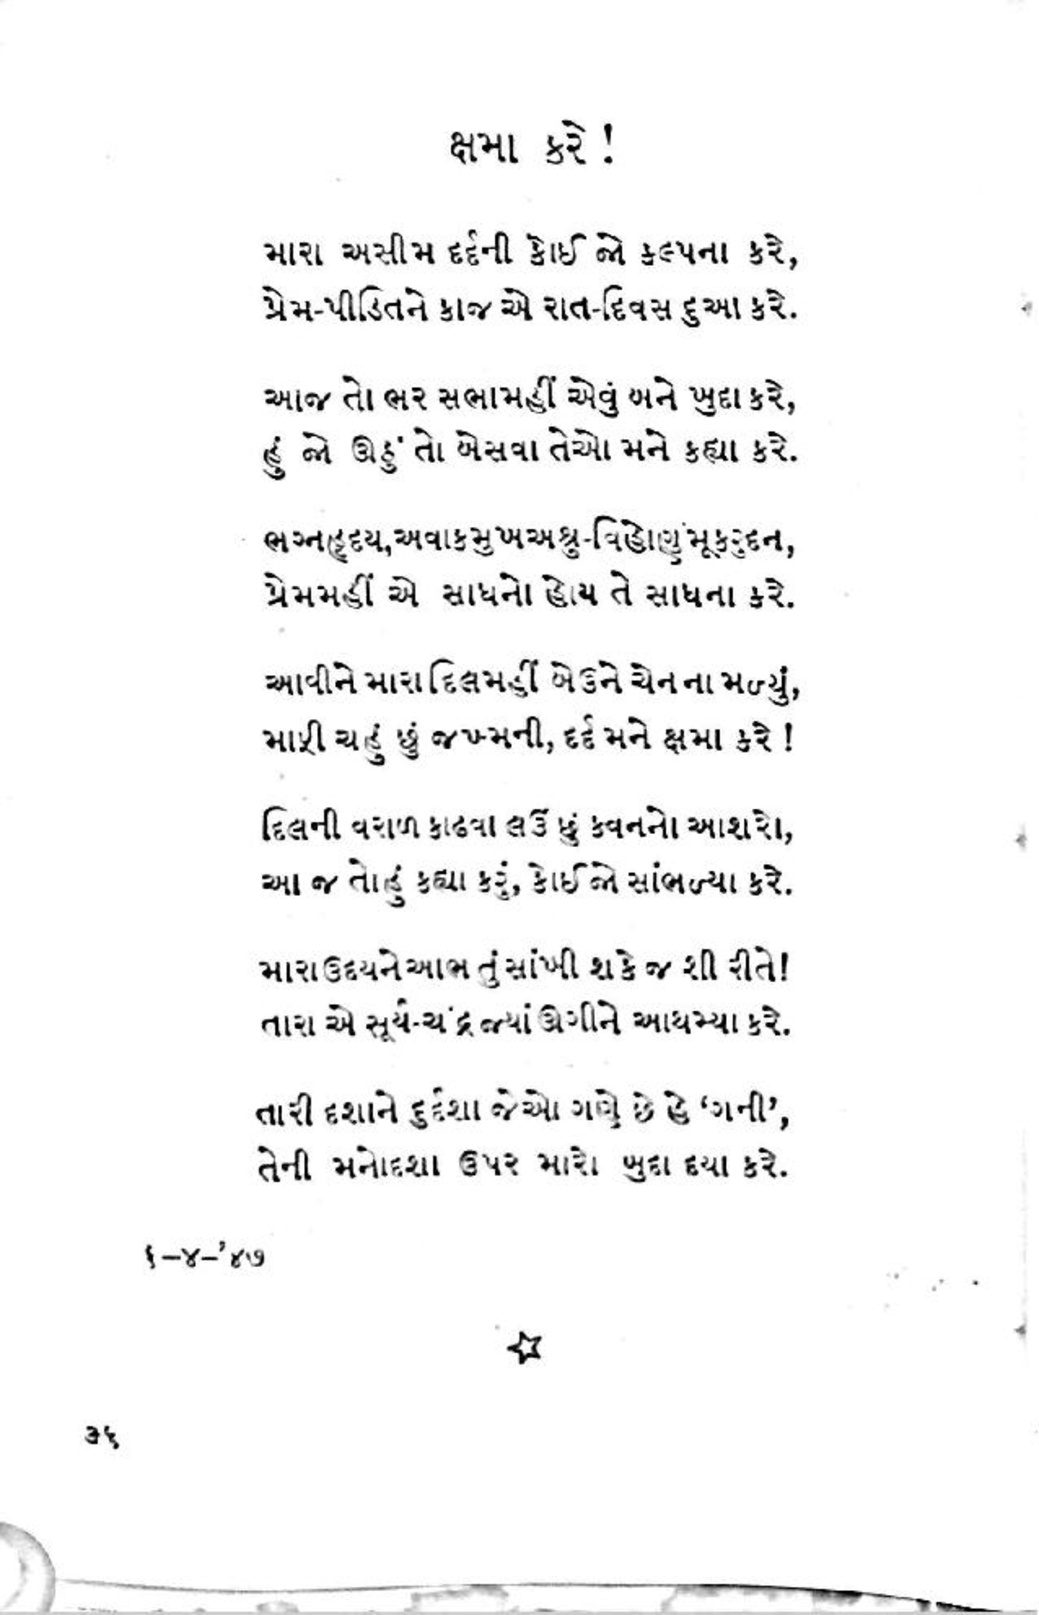 ક્ષમા કરે !
મારા અસીમ દર્દની કોઈ જો કલ્પના કરે,
પ્રેમ-પીડિતને કાજ એ રાત-દિવસ દુઆ કરે.
આજ તો ભર સભામહીં એવું બને ખુદા કરે,
હું જો ઊઠું તો બેસવા તેઓ મને કહ્યા કરે.
ભગ્નહૃદય, અવાકમુખ અશ્રુ-વિહોણું મૂકરુદન,
પ્રેમમહીં એ સાધનો હોય તે સાધના કરે.
આવીને મારા દિલમહીં બેઉને ચેન ના મળ્યું,
માફી ચહું છું જખ્મની, દર્દ મને ક્ષમા કરે !
દિલની વરાળ કાઢવા લઉં છું કવનનો આશરો,
આ જ તો હું કહ્યા કરું, કોઈ જો સાંભળ્યા કરે.
મારા ઉદયને આભ તું સાંખી શકે જ શી રીતે!
તારા એ સૂર્ય-ચંદ્ર જ્યાં ઊગીને આથમ્યા કરે.
તારી દશાને દુર્દશા જેઓ ગણે છે હે ‘ગની’,
તેની મનોદશા ઉપર મારો ખુદા દયા કરે.
૬-૪-’૪૭
૩૬